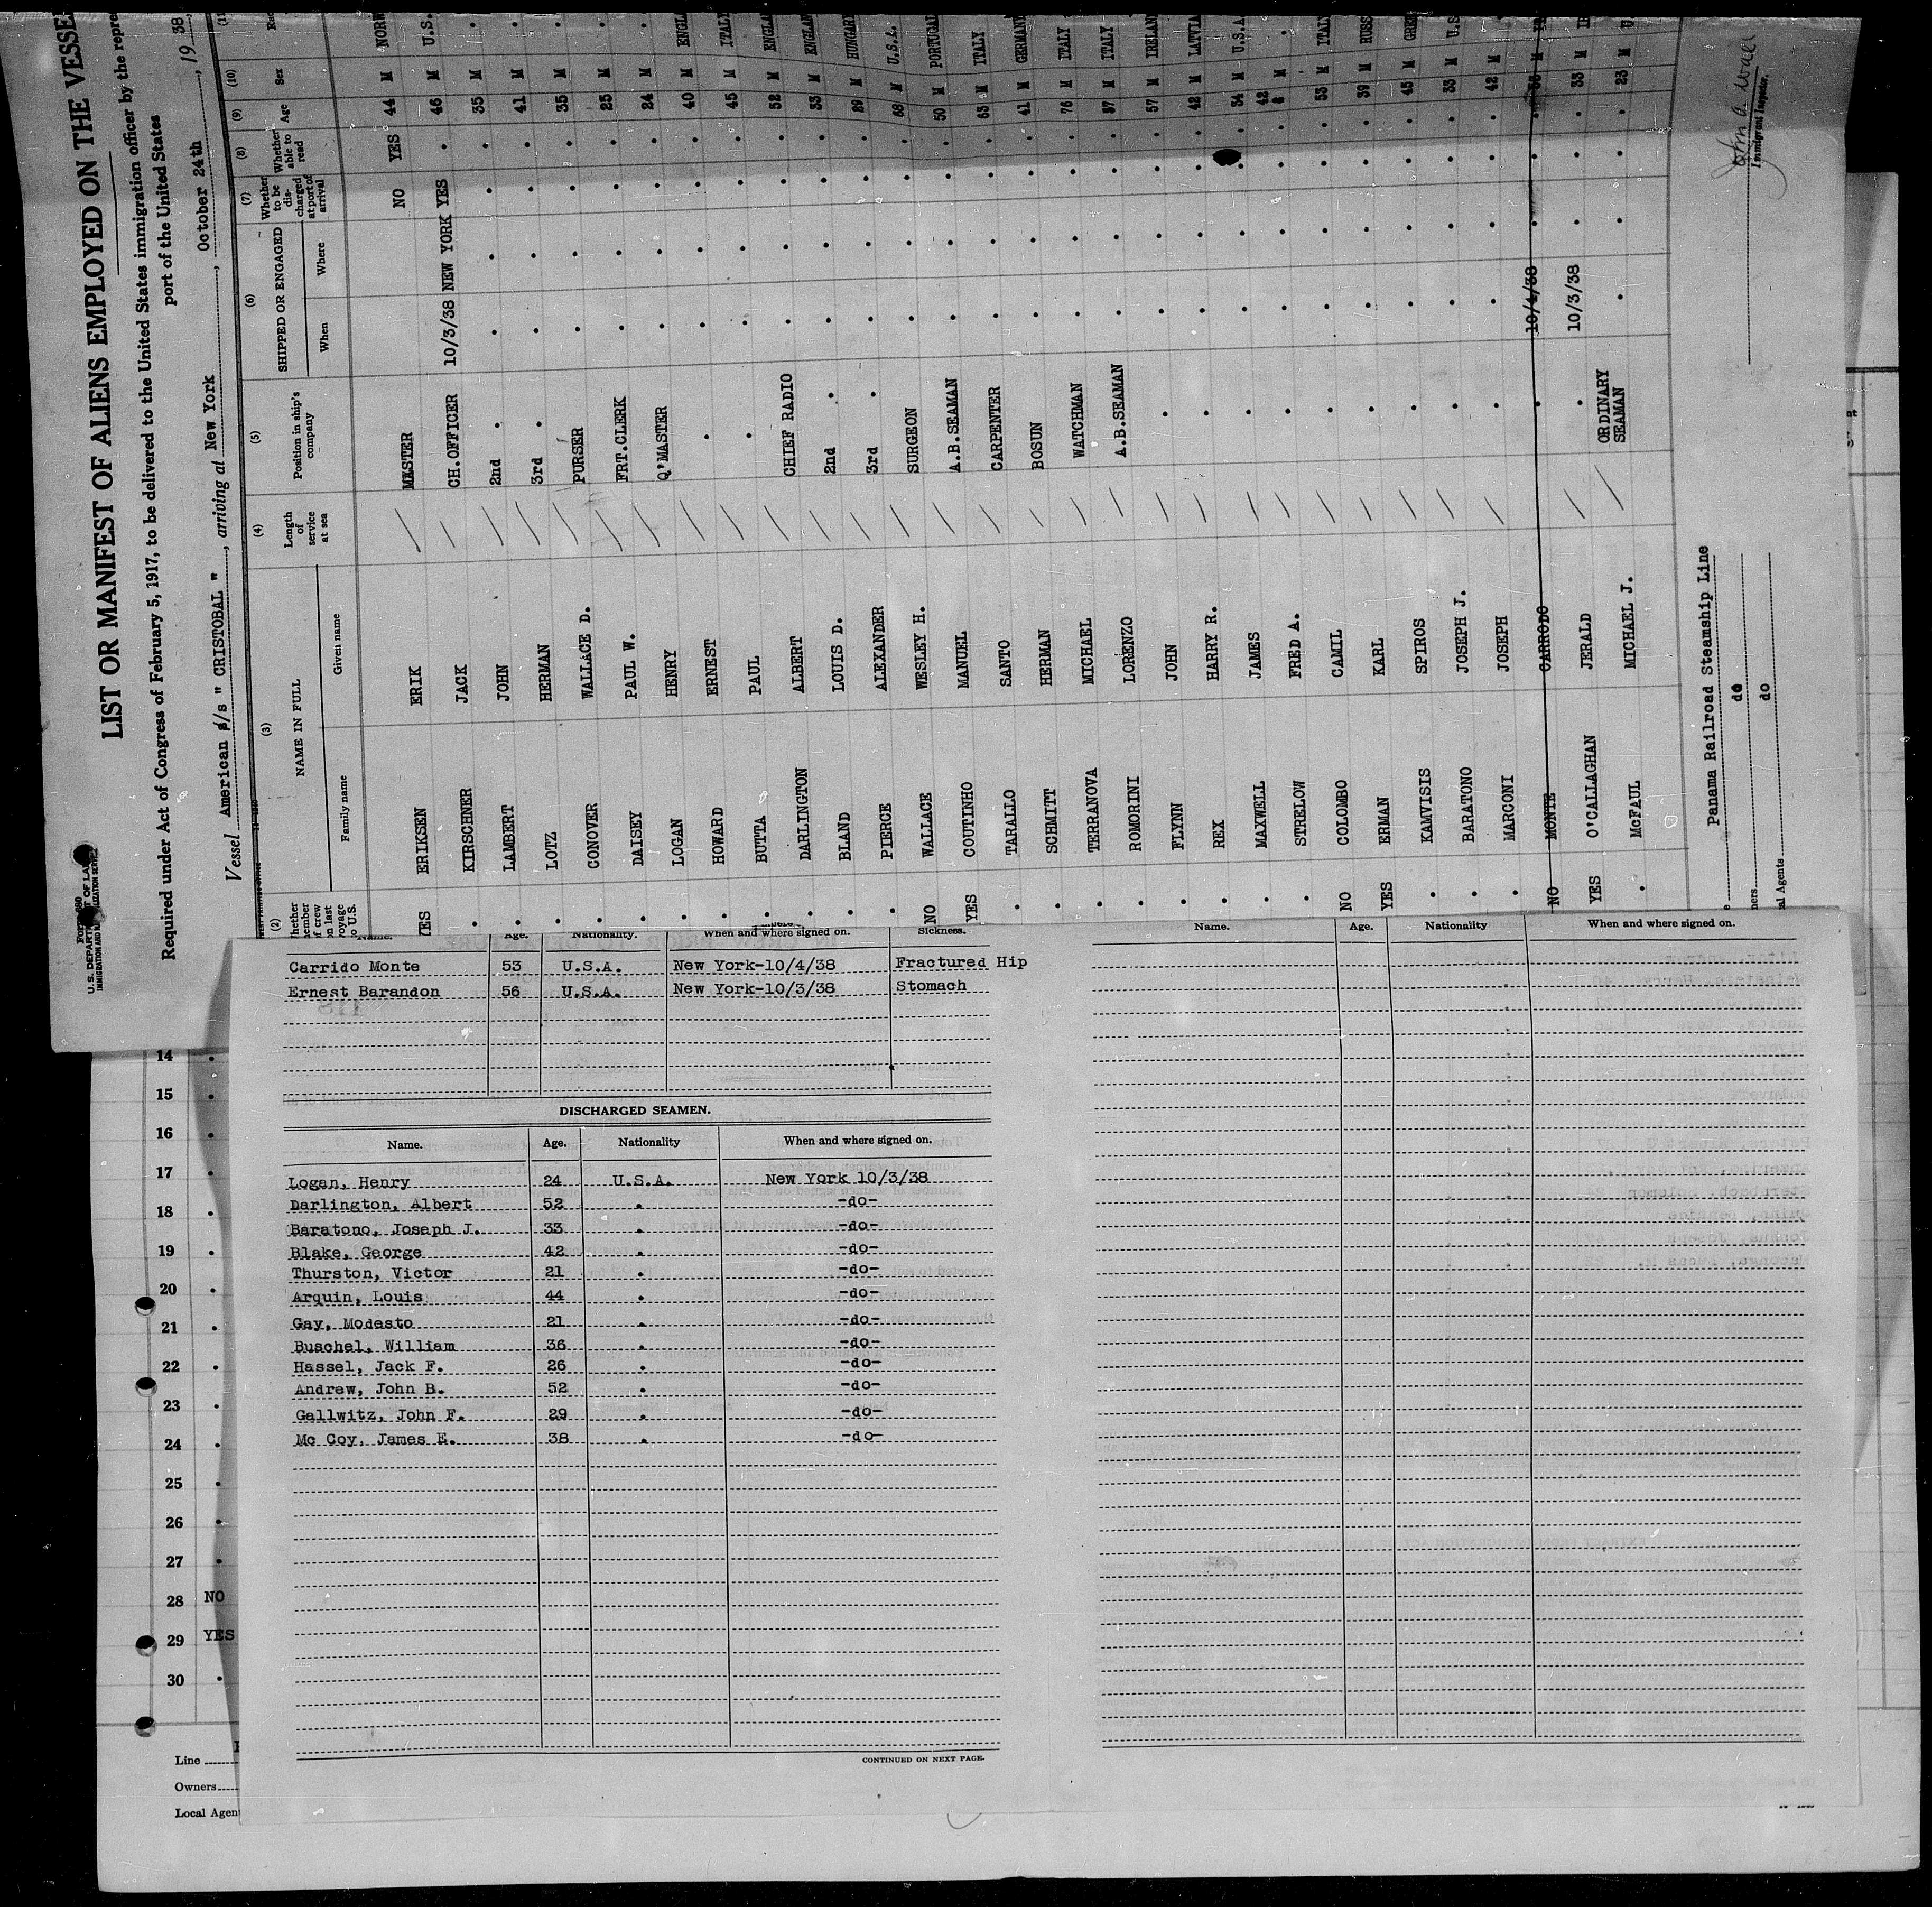 Form 680
U. S. DEPARTMENT OF LABOR
LIST OR MANIFEST OF ALIENS EMPLOYED ON THE VESSE
Required under Act of Congress of February 5, 1917, to be delivered to the United States immigration officer by the repre
port of the United States
Vessel American s/s " CRISTOBAL ", arriving at New York, October 24th, 19 38,
(2) (3) (4) (5) (6) (7) (8) (9) (10) (11)
NAME IN FULL Length of service at sea Position in ship's company SHIPPED OR ENGAGED Whether to be discharged at port of arrival Whether able to read Age Sex
Family name Given name When Where
YES ERIKSEN ERIK MASTER NO YES 44 M NORW
. KIRSCHNER JACK CH.OFFICER 10/3/38 NEW YORK YES . 46 M U.S.
. LAMBERT JOHN 2nd . . . . . 35 M .
. LOTZ HERMAN 3rd . . . . . 41 M .
. CONOVER WALLACE D. PURSER . . . . 35 M .
. DAISEY PAUL W. FRT.CLERK . . . . 25 M .
. LOGAN HENRY Q'MASTER . . . . 24 M .
. HOWARD ERNEST . . . . . 40 M ENGLA
. BUTTA PAUL . . . . . 45 M ITALY
. DARLINGTON ALBERT CHIEF RADIO . . . . 52 M ENGLA
. BLAND LOUIS D. 2nd . . . . . 53 M ENGLAN
. PIERCE ALEXANDER 3rd . . . . . 29 M HUNGARY
NO WALLACE WESLEY H. SURGEON . . . . 68 M U.S.A.
YES COUTINHO MANUEL A.B.SEAMAN . . . . 50 M PORTUGAL
. TARALLO SANTO CARPENTER . . . . 63 M ITALY
. SCHMITT HERMAN BOSUN . . . . 41 M GERMANY
. TERRANOVA MICHAEL WATCHMAN . . . . 76 M ITALY
. ROMORINI LORENZO A.B.SEAMAN . . . . 37 M ITALY
. FLYNN JOHN . . . . . 57 M IRELAN
. REX HARRY R. . . . . . 42 M LATVIA
. MAXWELL JAMES . . . . . 34 M U.S.A.
. STRELOW FRED A. . . . . . 42 M .
NO COLOMBO CAMIL . . . . . 53 M ITALY
YES ERMAN KARL . . . . . 39 M RUSS
. KAMVISIS SPIROS . . . . . 45 M GREE
. BARATONO JOSEPH J. . . . . . 33 M U.S
. MARCONI JOSEPH . . . . . 42 M .
NO MONTE CARRODO . 10/4/38 . . .
YES O'CALLAGHAN JERALD . 10/3/38 . . . 33 M IR
. McFAUL MICHAEL J. ORDINARY SEAMAN . . . . 23 M U.
Panama Railroad Steamship Line
do
do
John A. Wall
Immigrant Inspector.
Name. Age. Nationality. When and where signed on. Sickness.
Carrido Monte 53 U.S.A. New York-10/4/38 Fractured Hip
Ernest Barandon 56 U.S.A. New York-10/3/38 Stomach
DISCHARGED SEAMEN.
Name. Age. Nationality When and where signed on.
Logan, Henry 24 U.S.A. New York 10/3/38
Darlington, Albert 52 . -do-
Baratono, Joseph J. 33 . -do-
Blake, George 42 . -do-
Thurston, Victor 21 . -do-
Arquin, Louis 44 . -do-
Gay, Modesto 21 . -do-
Buschel, William 36 . -do-
Hassel, Jack F. 26 . -do-
Andrew, John B. 52 . -do-
Gallwitz, John F. 29 . -do-
Mc Coy, James E. 38 . -do-
CONTINUED ON NEXT PAGE.
Name. Age. Nationality When and where signed on.
14
15
16
17
18
19
20
21
22
23
24
25
26
27
28 NO
29 YES
30
Line
Owners
Local Agen